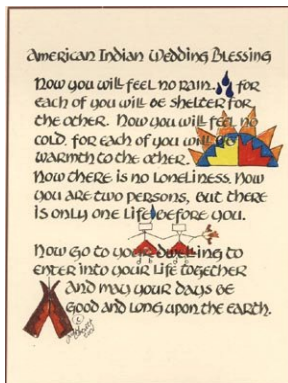 American Indian Wedding Blessing
Now you will feel no rain, for
each of you will be shelter for
the other. Now you will feel no
cold, for each of you will be
warmth to the other.
Now there is no loneliness. Now
you are two persons, but there
is only one life before you.
Now go to your dwelling to
enter into your life together
and may your days be
good and long upon the earth.